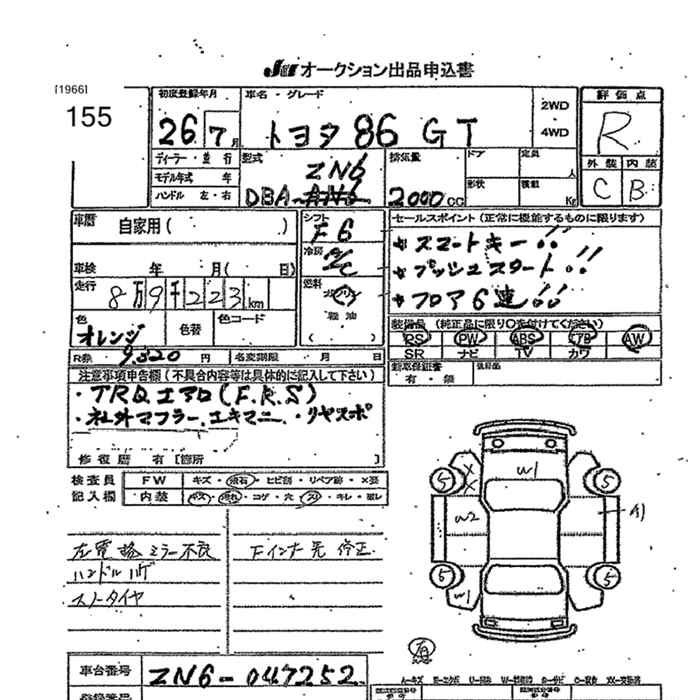 JU オークション出品申込書
[1966]
155
初度登録年月
26 7月
車名・グレード
トヨタ 86 GT
2WD
4WD
評価点
R
外装 内装
C B
ディーラー・並行
モデル年式 年
ハンドル 左・右
型式
ZN6
DBA-
排気量
2000 CC
ドア
定員
人
形状
積載
Kg
車歴
自家用( )
車検 年 月( 日)
走行
8万9千223km
色
オレンジ
色替
色コード
シフト
F6
冷房
A/C
燃料
ガソリン
軽油
( )
セールスポイント(正常に機能するものに限ります)
★スマートキー!!
★プッシュスタート!!
★フロア6速!!
装備品(純正品に限り○を付けてください)
PS PW ABS エアB AW
SR ナビ TV カワ
新車保証書
有・無
後日品
R券 9,320 円
名変期限 月 日
注意事項申告欄(不具合内容等は具体的に記入して下さい)
・TRDエアロ(F.R.S)
・社外マフラー.エキマニ.・リヤスポ
修復歴 有[箇所 ]
検査員
記入欄
FW
キズ・飛石・ヒビ割・リペア跡・×要
内装
キズ・汚れ・コゲ・穴・スレ・キレ・臭レ
左電格ミラー不良
ハンドルハゲ
スノータイヤ
Fインナー先修正
5
XX
W1
5
W2
A1
5
W1
5
車台番号
ZN6-047252
登録番号